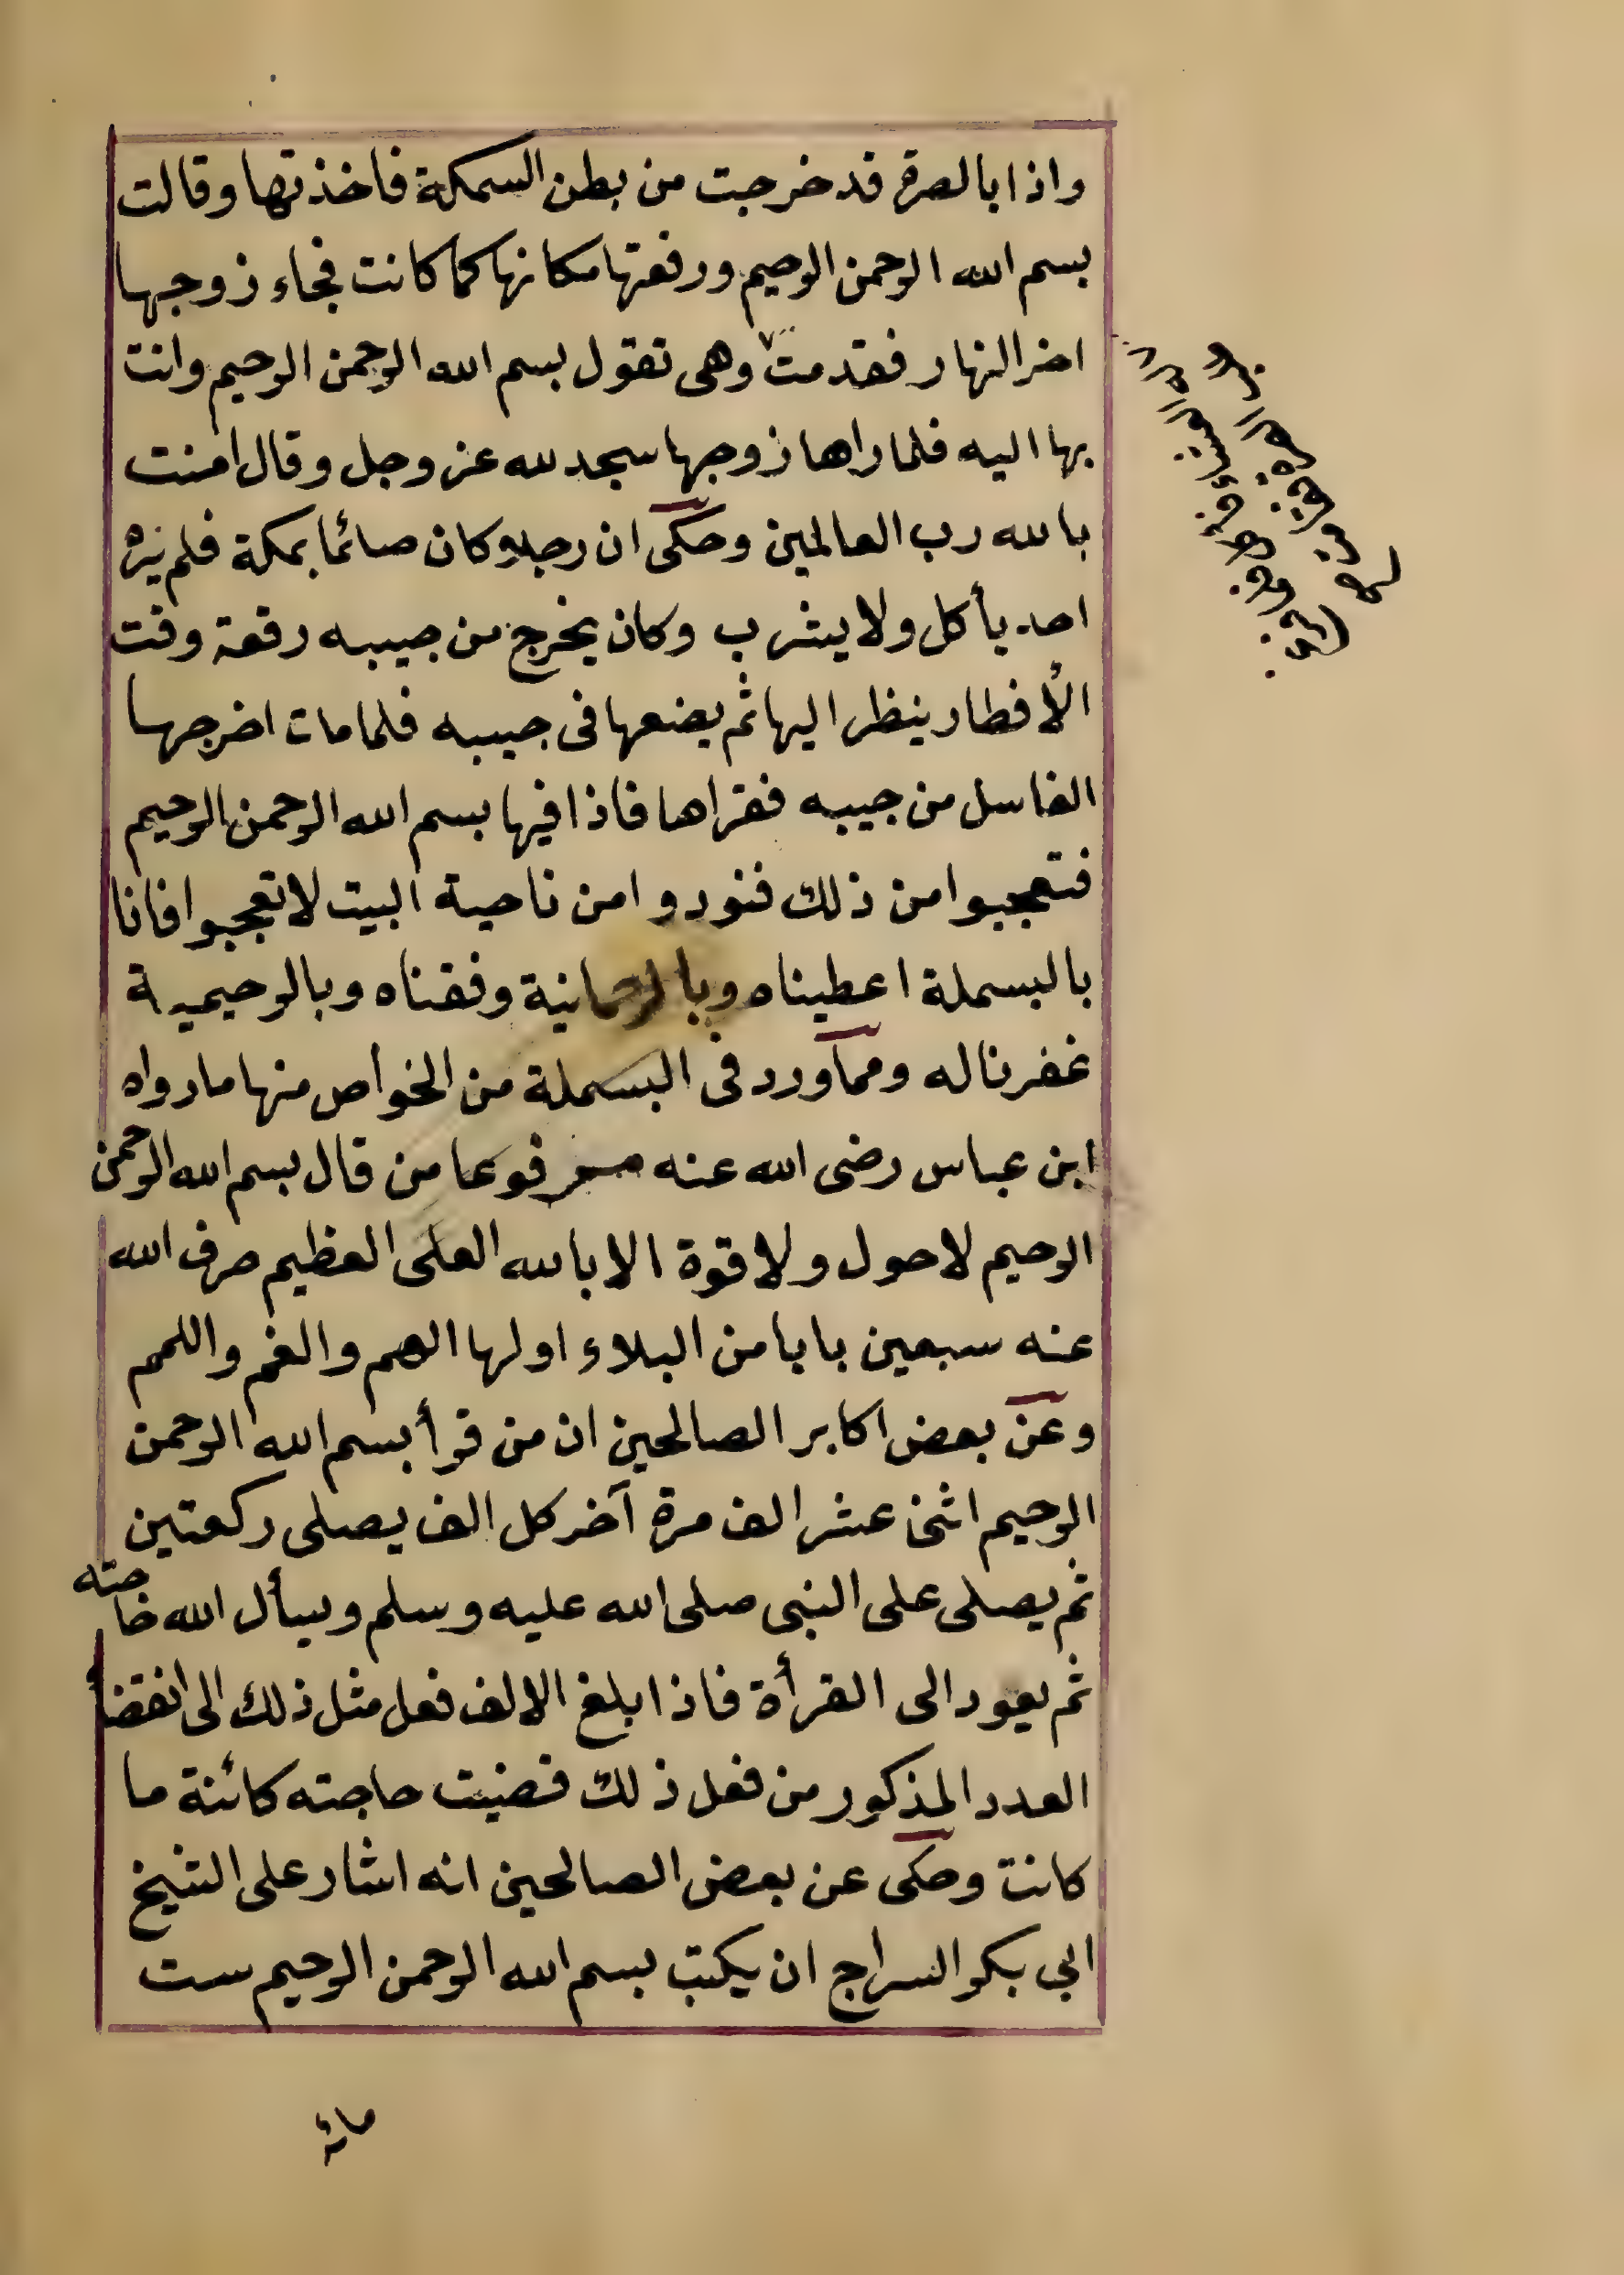 واذا بالصرة قد خرجت من بطن السمكة فاخذتها وقالت
بسم الله الرحمن الرحيم ورفعتها مكانها كما كانت فجاء زوجها
اخر النهار فقدمت وهى تقول بسم الله الرحمن الرحيم وانت
بها اليه فلما راها زوجها سجد لله عز وجل وقال امنت
بالله رب العالمين وحكى ان رجلا وكان صائما بمكة فلم يره
احد يأكل ولا يشرب وكان يخرج من جيبه رقعة وقت
الأفطار ينظر اليها ثم يضعها فى جيبه فلما مات اخرجها
الغاسل من جيبه فقراها فاذا فيها بسم الله الرحمن الرحيم
فتعجبوا من ذلك فنودوا من ناحية البيت لا تعجبوا فانا
بالبسملة اعطيناه وبالرحمانية وفقناه وبالرحيمية
غفرنا له ومما ورد فى البسملة من الخواص منها ما رواه
ابن عباس رضى الله عنه مرفوعا من قال بسم الله الرحمن
الرحيم لا حول ولا قوة الا بالله العلى العظيم صرف الله
عنه سبعين بابا من البلاء اولها الهم والغم واللمم
وعن بعض اكابر الصالحين ان من قرأ بسم الله الرحمن
الرحيم اثنى عشر الف مرة آخر كل الف يصلى ركعتين
ثم يصلى على النبى صلى الله عليه وسلم ويسأل الله حاجته
ثم يعود الى القرأة فاذا بلغ الالف فعل مثل ذلك الى انقضأ
العدد المذكور من فعل ذلك قضيت حاجته كائنة ما
كانت وحكى عن بعض الصالحين انه اشار على الشيخ
ابي بكر السراج ان يكتب بسم الله الرحمن الرحيم ست
مائة